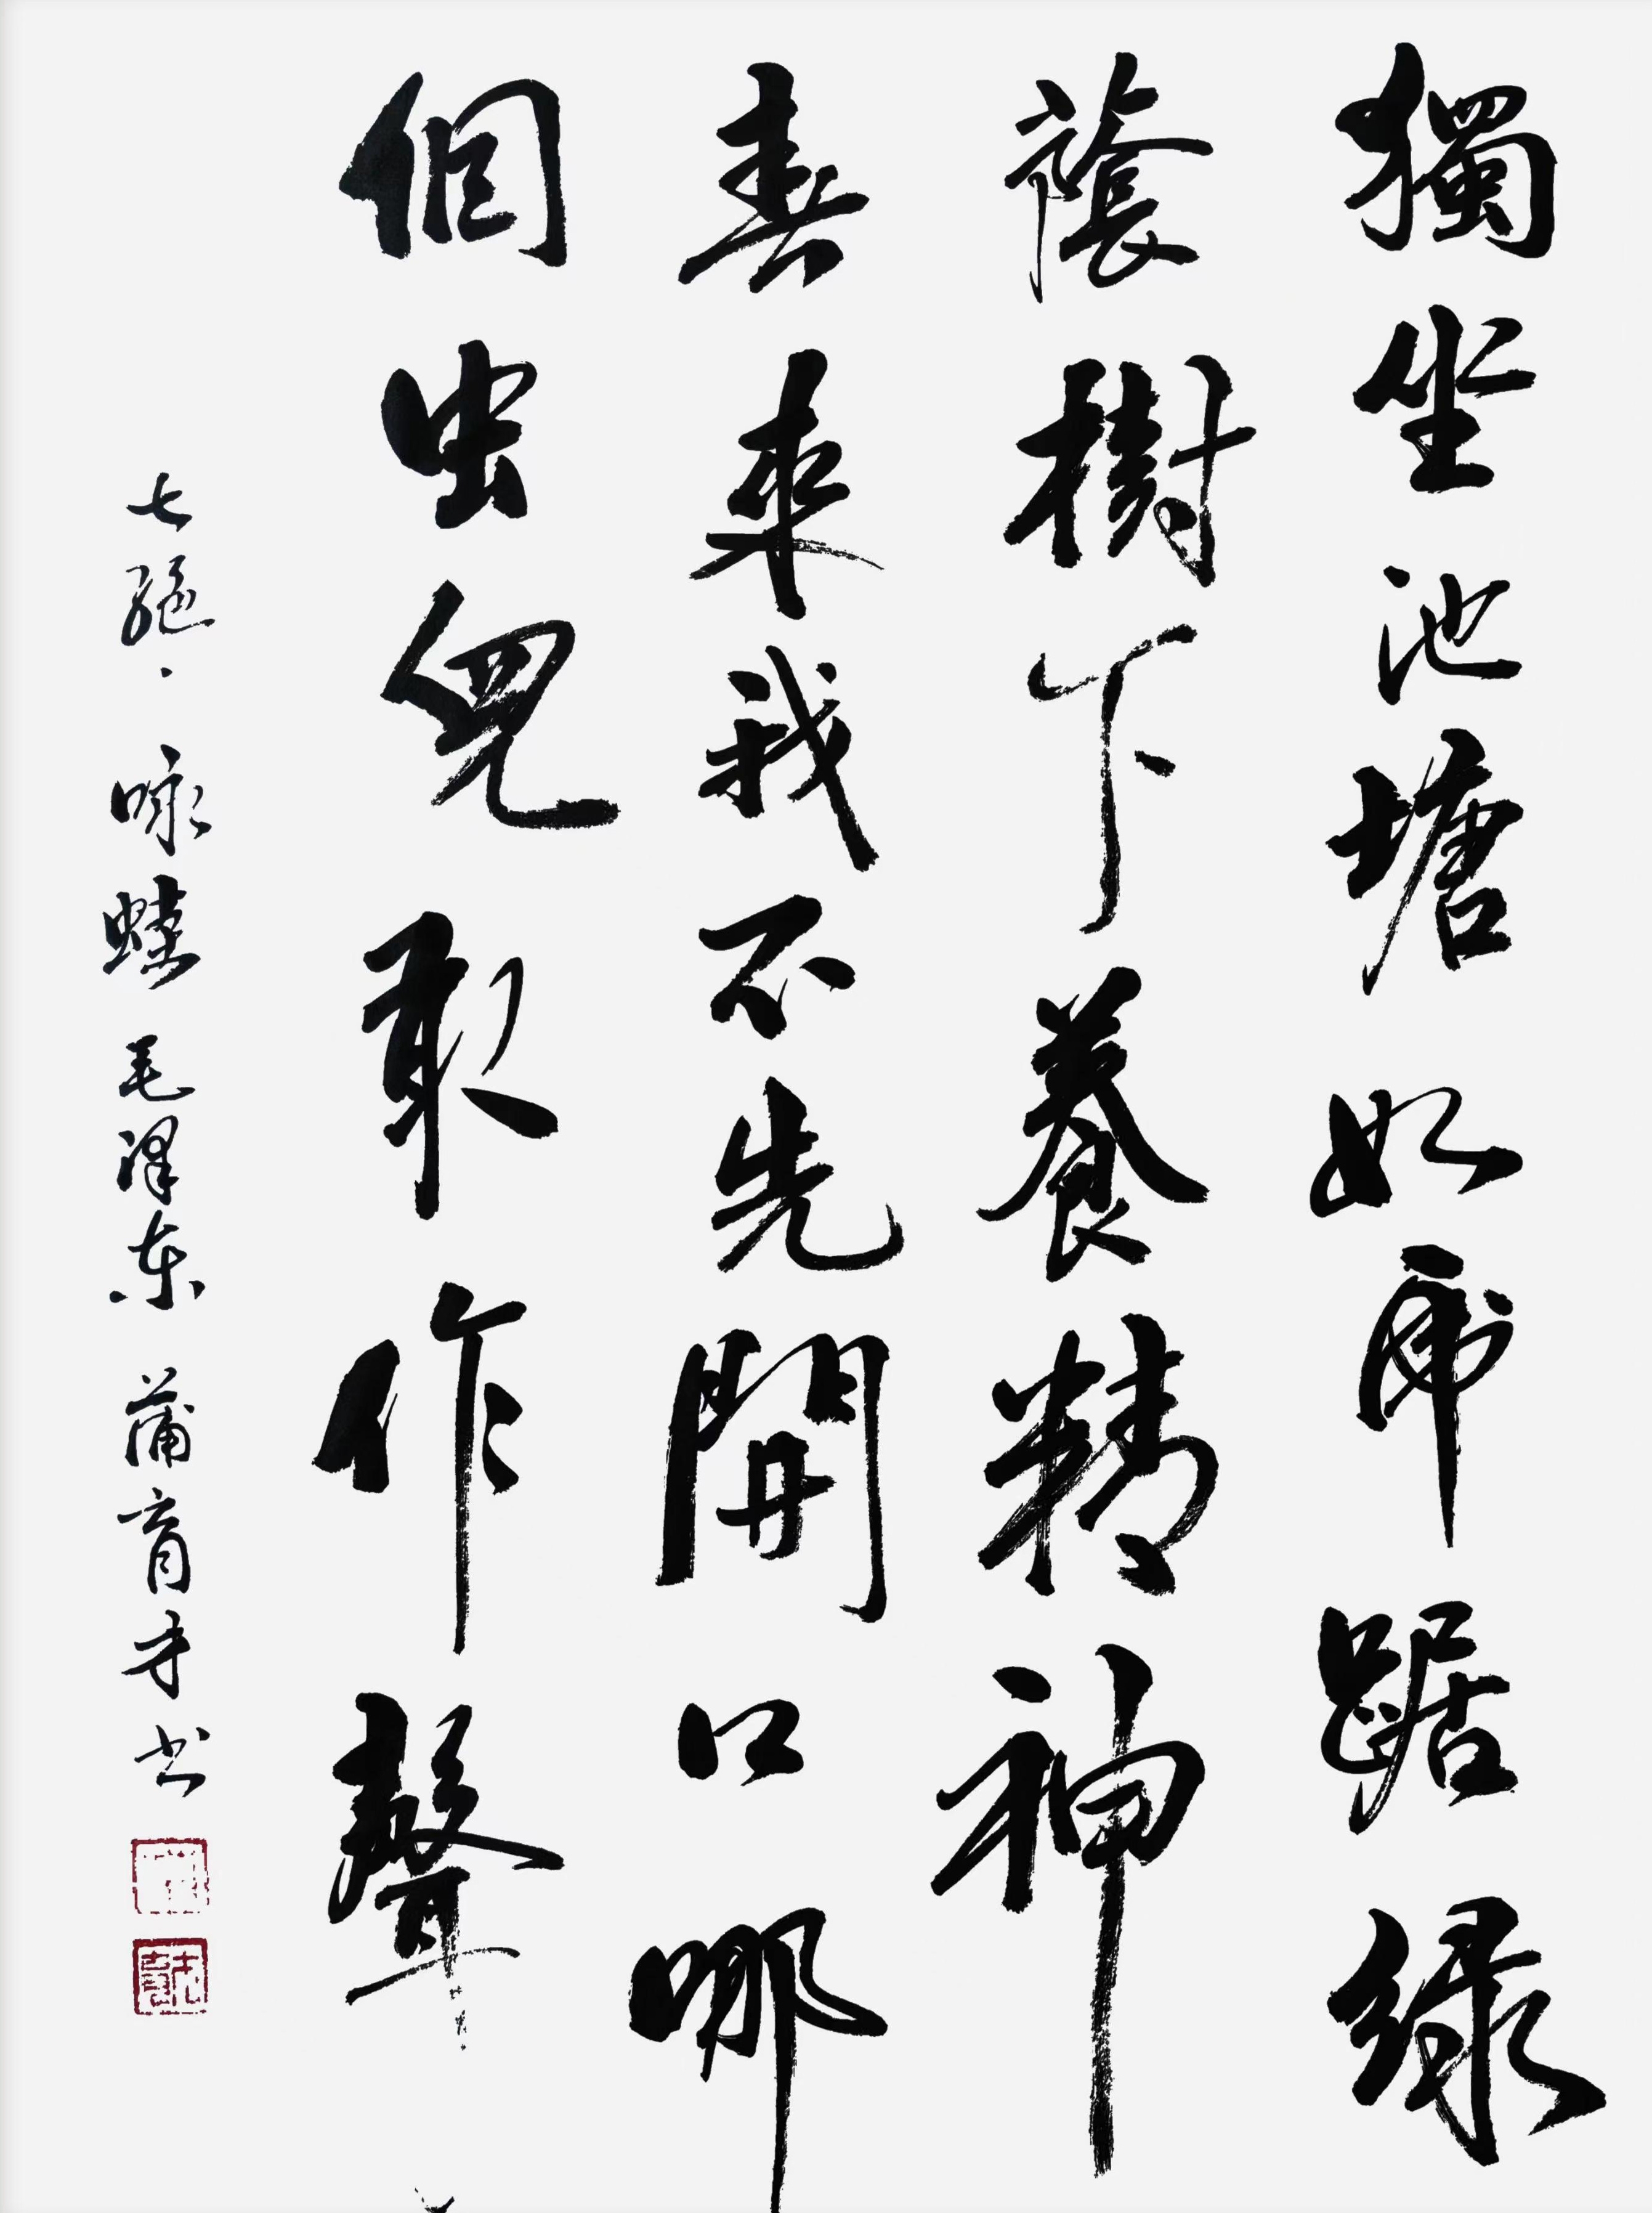 獨坐池塘如虎踞綠
蔭樹下養精神
春来我不先開口哪
個虫兒敢作聲
七絕·咏蛙 毛泽东 蒲育才书